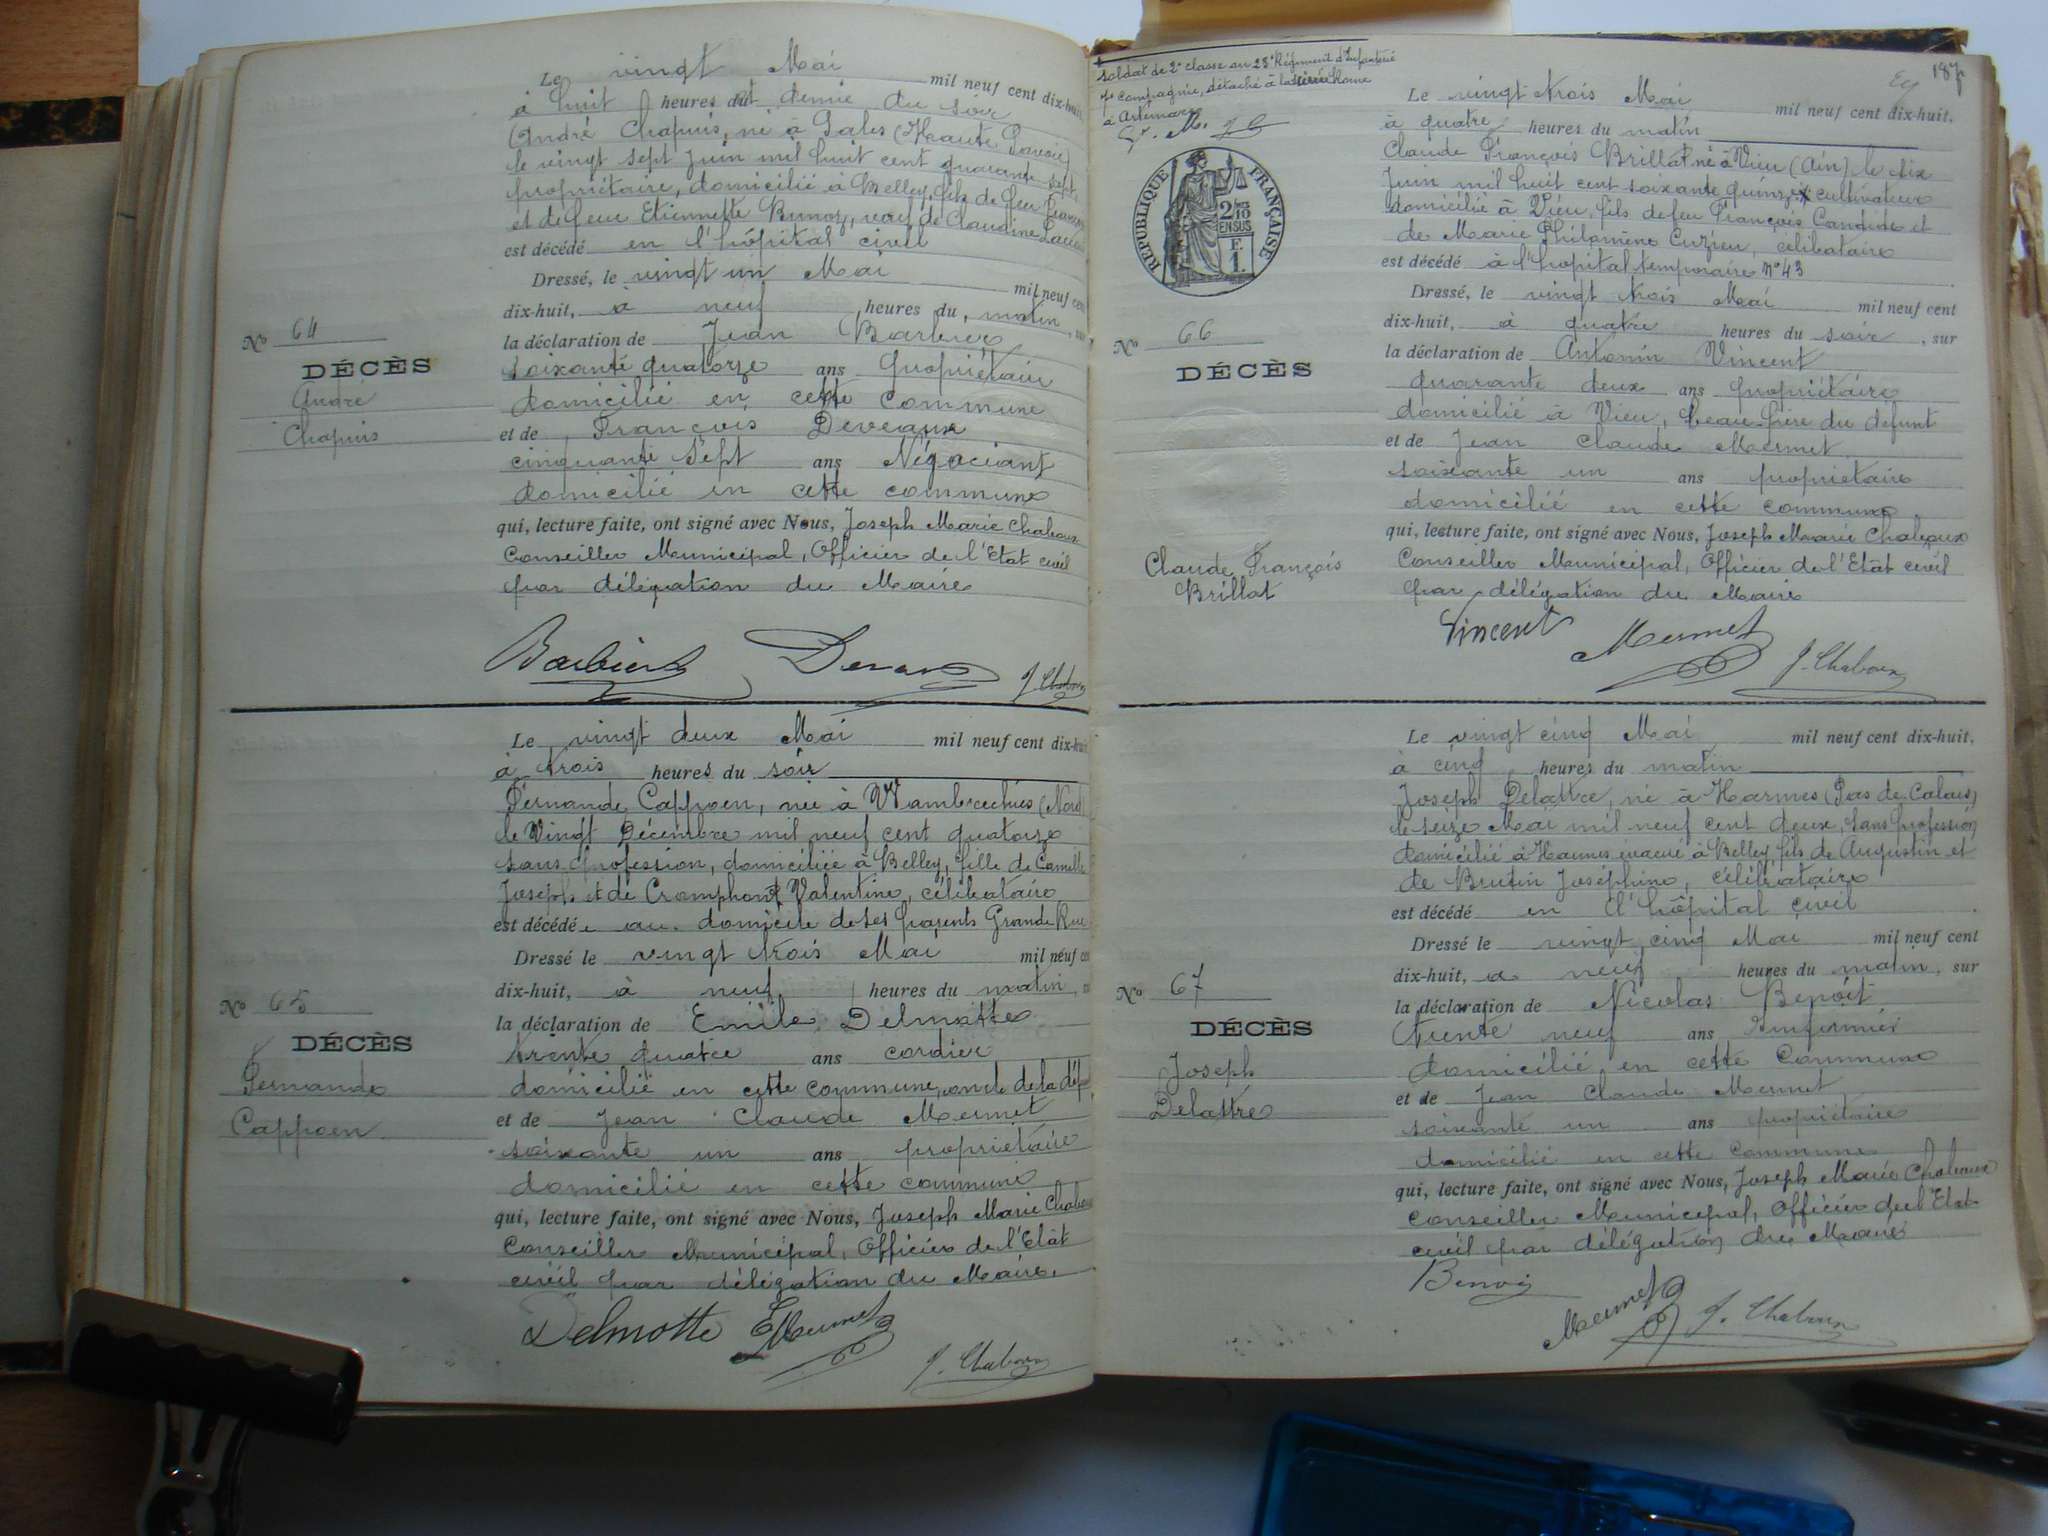 Le vingt Mai mil neuf cent dix-huit,
à huit heures du et demie du soir
André Chapuis, né à Sales (Haute Savoie)
le vingt sept Juin mil huit cent quarante sept
propriétaire, domicilié à Belley, fils de feu François
et de feue Etiennette Bunoz, veuf de Claudine
est décédé en l'hôpital civil
Dressé, le vingt un Mai mil neuf cent
dix-huit, à neuf heures du matin, sur
No 64
la déclaration de Jean Barbier
DÉCÈS
soixante quatorze ans propriétaire
André
domicilié en cette commune
Chapuis
et de François Deveaux
cinquante sept ans Négociant
domicilié en cette commune
qui, lecture faite, ont signé avec Nous, Joseph Marie Chaboux
Conseiller Municipal, Officier de l'Etat civil
par délégation du Maire
Barbier Devaux J. Chaboux
Le vingt deux Mai mil neuf cent dix-huit
à trois heures du soir
Fernande Cappoen, née à Wambrechies (Nord)
le Vingt Décembre mil neuf cent quatorze
sans profession, domiciliée à Belley, fille de Camille
Joseph et de Cromphout Valentine, célibataire
est décédée au domicile de ses parents Grande Rue
Dressé le vingt trois Mai mil neuf cent
dix-huit, à neuf heures du matin,
No 65
la déclaration de Emile Delmotte
DÉCÈS
trente quatre ans cordier
Fernande
domicilié en cette commune, oncle de la déf
Cappoen
et de Jean Claude Mermet
soixante un ans propriétaire
domicilié en cette commune
qui, lecture faite, ont signé avec Nous, Joseph Marie Chaboux
Conseiller Municipal, Officier de l'Etat
civil par délégation du Maire.
Delmotte Mermet
J. Chaboux
187
Soldat de 2e classe au 23e Régiment d'Infanterie
7e Compagnie, détaché à la
à Artemare
V. M. J C
RÉPUBLIQUE FRANÇAISE
2/10 EN SUS
F.
1.
Le vingt trois Mai mil neuf cent dix-huit,
à quatre heures du matin
Claude François Brillat né à Vieu (Ain) le six
Juin mil huit cent soixante quinze x cultivateur
domicilié à Vieu, fils de feu François Candide et
de Marie Philomène Cuzieu, célibataire
est décédé à l'hopital temporaire N° 43
Dressé, le vingt trois Mai mil neuf cent
dix-huit, à quatre heures du soir, sur
No 66
la déclaration de Antonin Vincent
DÉCÈS
quarante deux ans propriétaire
domicilié à Vieu, beau-frère du défunt
et de Jean Claude Mermet
soixante un ans propriétaire
domicilié en cette commune
qui, lecture faite, ont signé avec Nous, Joseph Marie Chaboux
Claude François
Conseiller Municipal, Officier de l'Etat civil
Brillat
par délégation du Maire
Vincent Mermet J. Chaboux
Le vingt cinq Mai mil neuf cent dix-huit,
à cinq heures du matin
Joseph Delattre, né à Harnes (Pas de Calais)
le seize Mai mil neuf cent deux, sans profession
domicilié à Harnes évacué à Belley, fils de Augustin et
de Brutin Joséphine, célibataire
est décédé en l'hôpital civil
Dressé le vingt cinq Mai mil neuf cent
dix-huit, à neuf heures du matin, sur
No 67
la déclaration de Nicolas Benoit
DÉCÈS
trente neuf ans Infirmier
Joseph
domicilié en cette Commune
Delattre
et de Jean Claude Mermet
soixante un ans propriétaire
domicilié en cette Commune
qui, lecture faite, ont signé avec Nous, Joseph Marie Chaboux
Conseiller Municipal, Officier de l'Etat
civil par délégation du Maire
Benoit
Mermet J. Chaboux